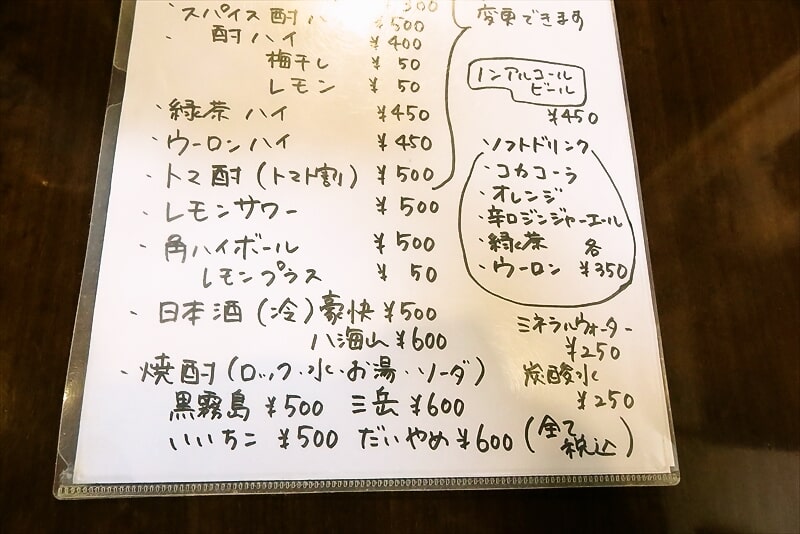 ・スパイス酎ハイ ¥500
酎ハイ ¥400
梅干し ¥50
レモン ¥50
・緑茶ハイ ¥450
・ウーロンハイ ¥450
・トマ酎(トマト割) ¥500
・レモンサワー ¥500
・角ハイボール ¥500
レモンプラス ¥50
・日本酒(冷)豪快 ¥500
八海山 ¥600
・焼酎(ロック・水・お湯・ソーダ)
黒霧島 ¥500 三岳 ¥600
いいちこ ¥500 だいやめ ¥600
変更できます
ノンアルコール
ビール
¥450
ソフトドリンク
・コカコーラ
・オレンジ
・辛口ジンジャーエール
・緑茶 各
・ウーロン ¥350
ミネラルウォーター
¥250
炭酸水
¥250
(全て
税込)